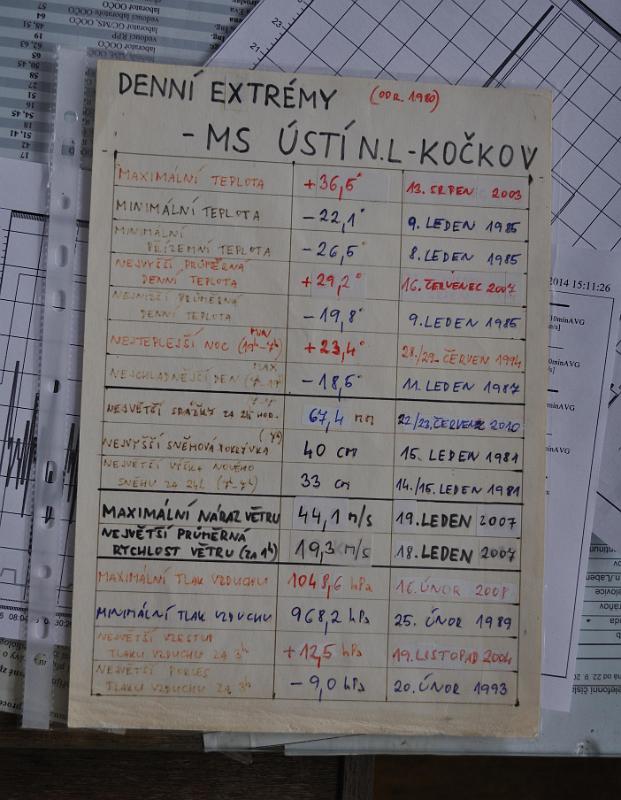 DENNÍ EXTRÉMY (OD R. 1980)
- MS ÚSTÍ N.L-KOČKOV
MAXIMÁLNÍ TEPLOTA +36,5° 13. SRPEN 2003
MINIMÁLNÍ TEPLOTA -22,1° 9. LEDEN 1985
MINIMÁLNÍ
PŘÍZEMNÍ TEPLOTA -26,5° 8. LEDEN 1985
NEJVYŠŠÍ PRŮMĚRNÁ
DENNÍ TEPLOTA +29,2° 16. ČERVENEC 2007
NEJNIŽŠÍ PRŮMĚRNÁ
DENNÍ TEPLOTA -19,8° 9. LEDEN 1985
MIN
NEJTEPLEJŠÍ NOC +23,4° 28./29. ČERVEN 1994
MAX
NEJCHLADNĚJŠÍ DEN -18,5° 11. LEDEN 1987
NEJVĚTŠÍ SRÁŽKY ZA 24 HOD. 67,4 mm 22/23. ČERVENEC 2010
NEJVYŠŠÍ SNĚHOVÁ POKRÝVKA 40 cm 15. LEDEN 1981
NEJVĚTŠÍ VÝŠKA NOVÉHO
SNĚHU ZA 24h 33 cm 14./15. LEDEN 1981
MAXIMÁLNÍ NÁRAZ VĚTRU 44,1 m/s 19. LEDEN 2007
NEJVĚTŠÍ PRŮMĚRNÁ
RYCHLOST VĚTRU (ZA 1h) 19,3 m/s 18. LEDEN 2007
MAXIMÁLNÍ TLAK VZDUCHU 1048,6 hPa 16. ÚNOR 2008
MINIMÁLNÍ TLAK VZDUCHU 968,2 hPa 25. ÚNOR 1989
NEJVĚTŠÍ VZESTUP
TLAKU VZDUCHU ZA 3h +12,5 hPa 19. LISTOPAD 2004
NEJVĚTŠÍ POKLES
TLAKU VZDUCHU ZA 3h -9,0 hPa 20. ÚNOR 1993
2014 15:11:26
10minAVG